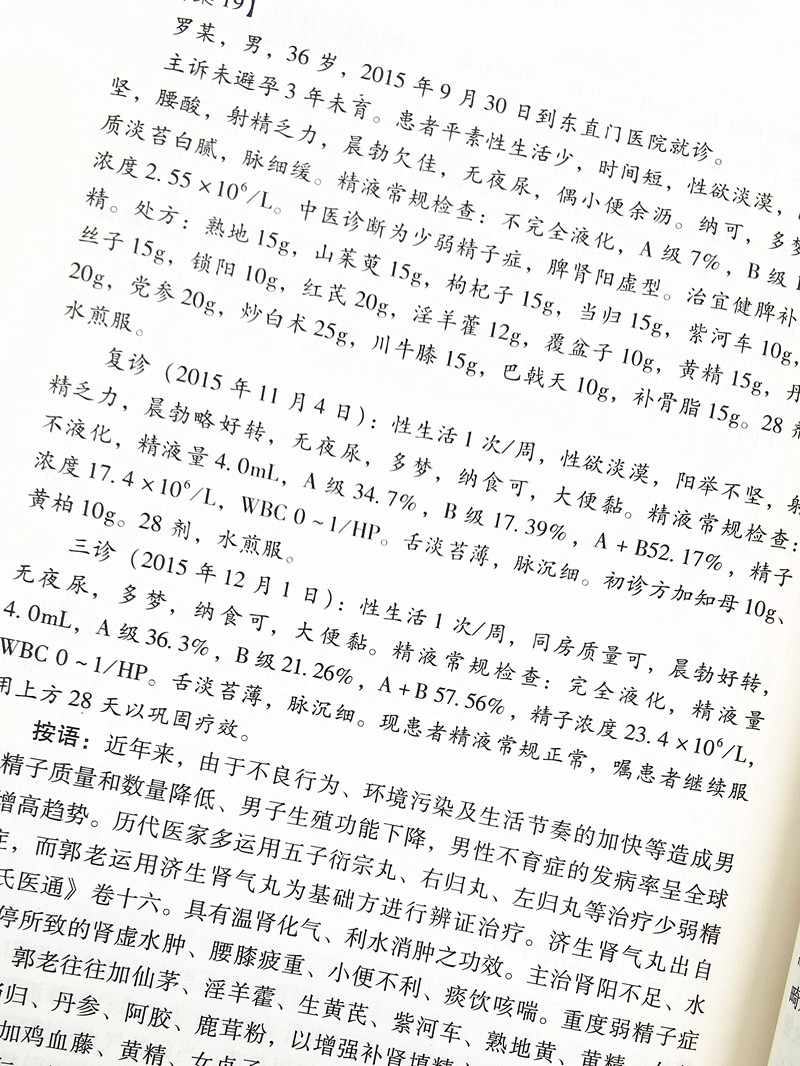 19】
罗某，男，36 岁，2015 年 9 月 30 日到东直门医院就诊。
主诉未避孕 3 年未育。患者平素性生活少，时间短，性欲淡漠，
坚，腰酸，射精乏力，晨勃欠佳，无夜尿，偶小便余沥。纳可，多梦
质淡苔白腻，脉细缓。精液常规检查：不完全液化，A 级 7%，B 级 1
浓度 2.55×10⁶/L。中医诊断为少弱精子症，脾肾阳虚型。治宜健脾补
精。处方：熟地 15g，山茱萸 15g，枸杞子 15g，当归 15g，紫河车 10g，
丝子 15g，锁阳 10g，红芪 20g，淫羊藿 12g，覆盆子 10g，黄精 15g，丹
20g，党参 20g，炒白术 25g，川牛膝 15g，巴戟天 10g，补骨脂 15g。28 剂
水煎服。
复诊（2015 年 11 月 4 日）：性生活 1 次/周，性欲淡漠，阳举不坚，射
精乏力，晨勃略好转，无夜尿，多梦，纳食可，大便黏。精液常规检查：
不液化，精液量 4.0mL，A 级 34.7%，B 级 17.39%，A+B52.17%，精子
浓度 17.4×10⁶/L，WBC 0~1/HP。舌淡苔薄，脉沉细。初诊方加知母 10g、
黄柏 10g。28 剂，水煎服。
三诊（2015 年 12 月 1 日）：性生活 1 次/周，同房质量可，晨勃好转，
无夜尿，多梦，纳食可，大便黏。精液常规检查：完全液化，精液量
4.0mL，A 级 36.3%，B 级 21.26%，A+B 57.56%，精子浓度 23.4×10⁶/L，
WBC 0~1/HP。舌淡苔薄，脉沉细。现患者精液常规正常，嘱患者继续服
用上方 28 天以巩固疗效。
按语：近年来，由于不良行为、环境污染及生活节奏的加快等造成男
精子质量和数量降低、男子生殖功能下降，男性不育症的发病率呈全球
增高趋势。历代医家多运用五子衍宗丸、右归丸、左归丸等治疗少弱精
症，而郭老运用济生肾气丸为基础方进行辨证治疗。济生肾气丸出自
氏医通》卷十六。具有温肾化气、利水消肿之功效。主治肾阳不足、水
停所致的肾虚水肿、腰膝疲重、小便不利、痰饮咳喘。重度弱精子症
郭老往往加仙茅、淫羊藿、生黄芪、紫河车、熟地黄、黄精、
当归、丹参、阿胶、鹿茸粉，以增强补肾填精
加鸡血藤、黄精、女贞子